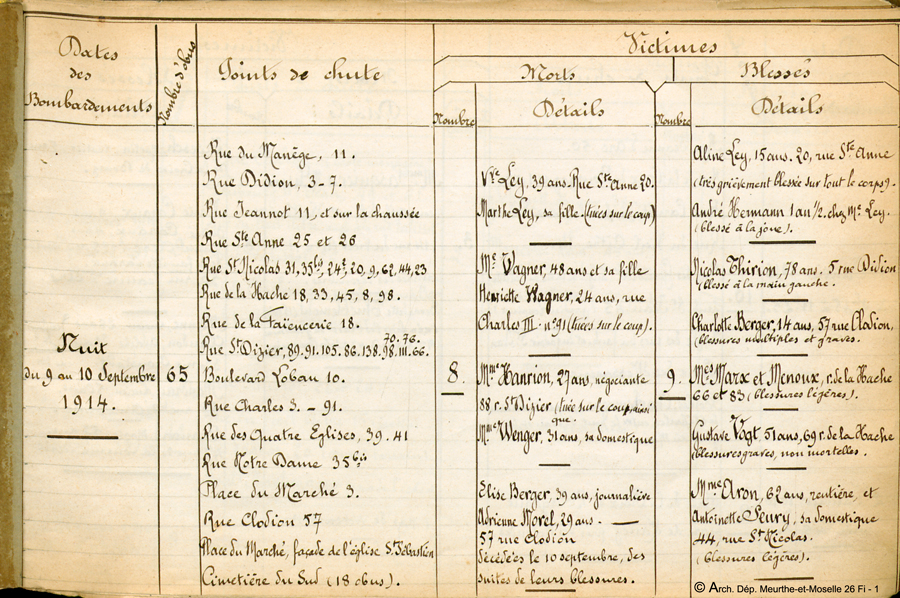 Dates
des
Bombardements
Nombre d'obus
Points de chute
Victimes
Morts
Blessés
Nombre
Détails
Nombre
Détails
Nuit
du 9 au 10 Septembre
1914.
65
Rue du Manège, 11.
Rue Didion, 3-7.
Rue Jeannot 11, et sur la chaussée
Rue Ste Anne 25 et 26
Rue St Nicolas 31, 35bis, 24t, 20, 9, 62, 44, 23
Rue de la Hache 18, 33, 45, 8, 98.
Rue de la Faïencerie 18.
70. 76.
Rue St Dizier, 89. 91. 105. 86. 138. 98. 111. 66.
Boulevard Lobau 10.
Rue Charles 3. - 91.
Rue des Quatre Eglises, 39. 41
Rue Notre Dame 35bis
Place du Marché 3.
Rue Clodion 57
Place du Marché, façade de l'église St Sébastien
Cimetière du Sud (18 obus).
8.
Vve Ley, 39 ans. Rue Ste Anne 20.
Marthe Ley, sa fille (tuées sur le coup)
Me Wagner, 48 ans et sa fille
Henriette Wagner, 24 ans, rue
Charles III. n° 91 (tuées sur le coup).
Mme Hanrion, 27 ans, négociante
88 r. St Dizier (tuée sur le coup ainsi
que.
Mme Wenger, 31 ans, sa domestique
Elise Berger, 39 ans, journalière
Adrienne Morel, 29 ans. —
57 rue Clodion
décédées le 10 septembre, des
suites de leurs blessures.
9.
Aline Ley, 15 ans. 20, rue Ste Anne
(très grièvement blessée sur tout le corps).
André Hermann 1 an 1/2. chez Me Ley.
(blessé à la joue).
Nicolas Thirion, 78 ans. 5 rue Didion
(blessé à la main gauche.
Charlotte Berger, 14 ans, 57 rue Clodion,
(blessures multiples et graves.
Mes Marx et Menoux, r. de la Hache
66 et 83 (blessures légères).
Gustave Vogt, 51 ans, 69 r. de la Hache
(blessures graves, non mortelles.
Mme Aron, 62 ans, rentière, et
Antoinette Seury, sa domestique
44, rue St Nicolas.
(blessures légères).
© Arch. Dép. Meurthe-et-Moselle 26 Fi - 1